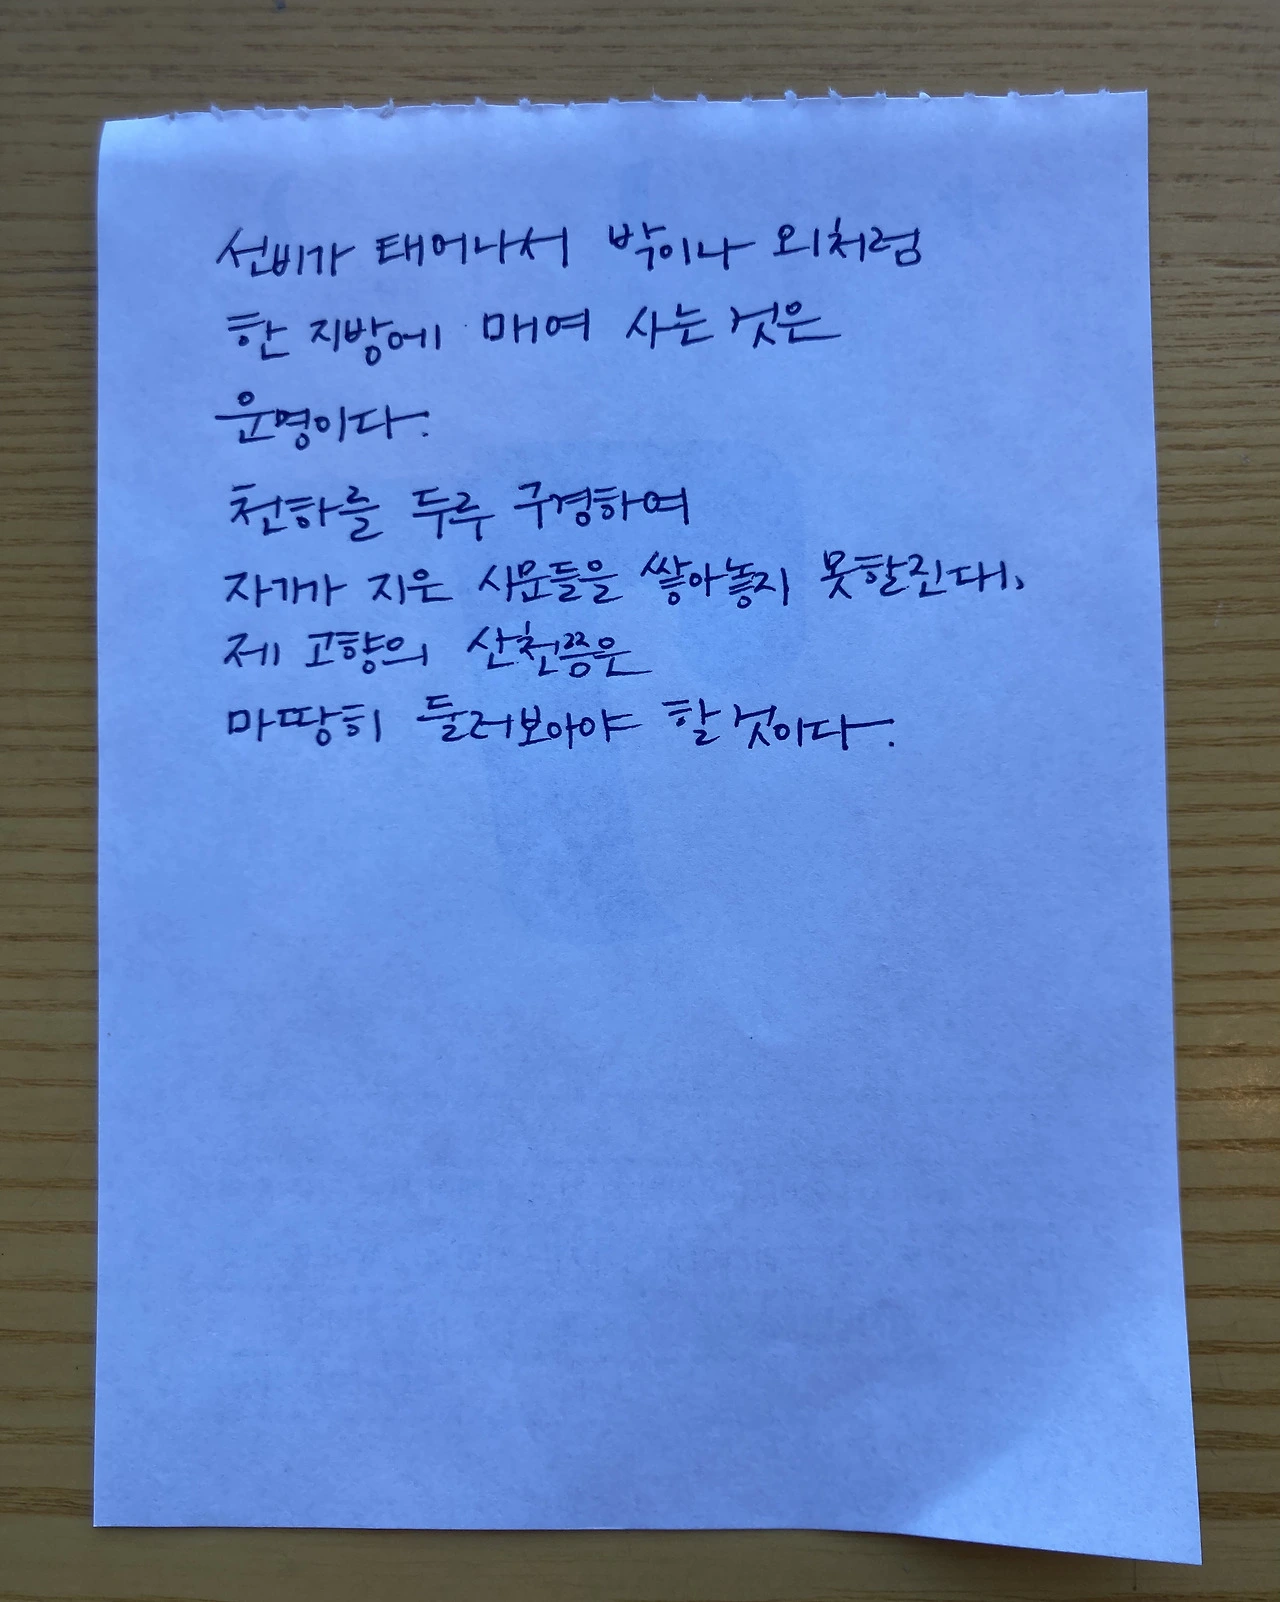 선비가 태어나서 박이나 외처럼
한 지방에 매여 사는 것은
운명이다.
천하를 두루 구경하여
자기가 지은 시문들을 쌓아놓지 못할진대,
제 고향의 산천쯤은
마땅히 둘러보아야 할 것이다.